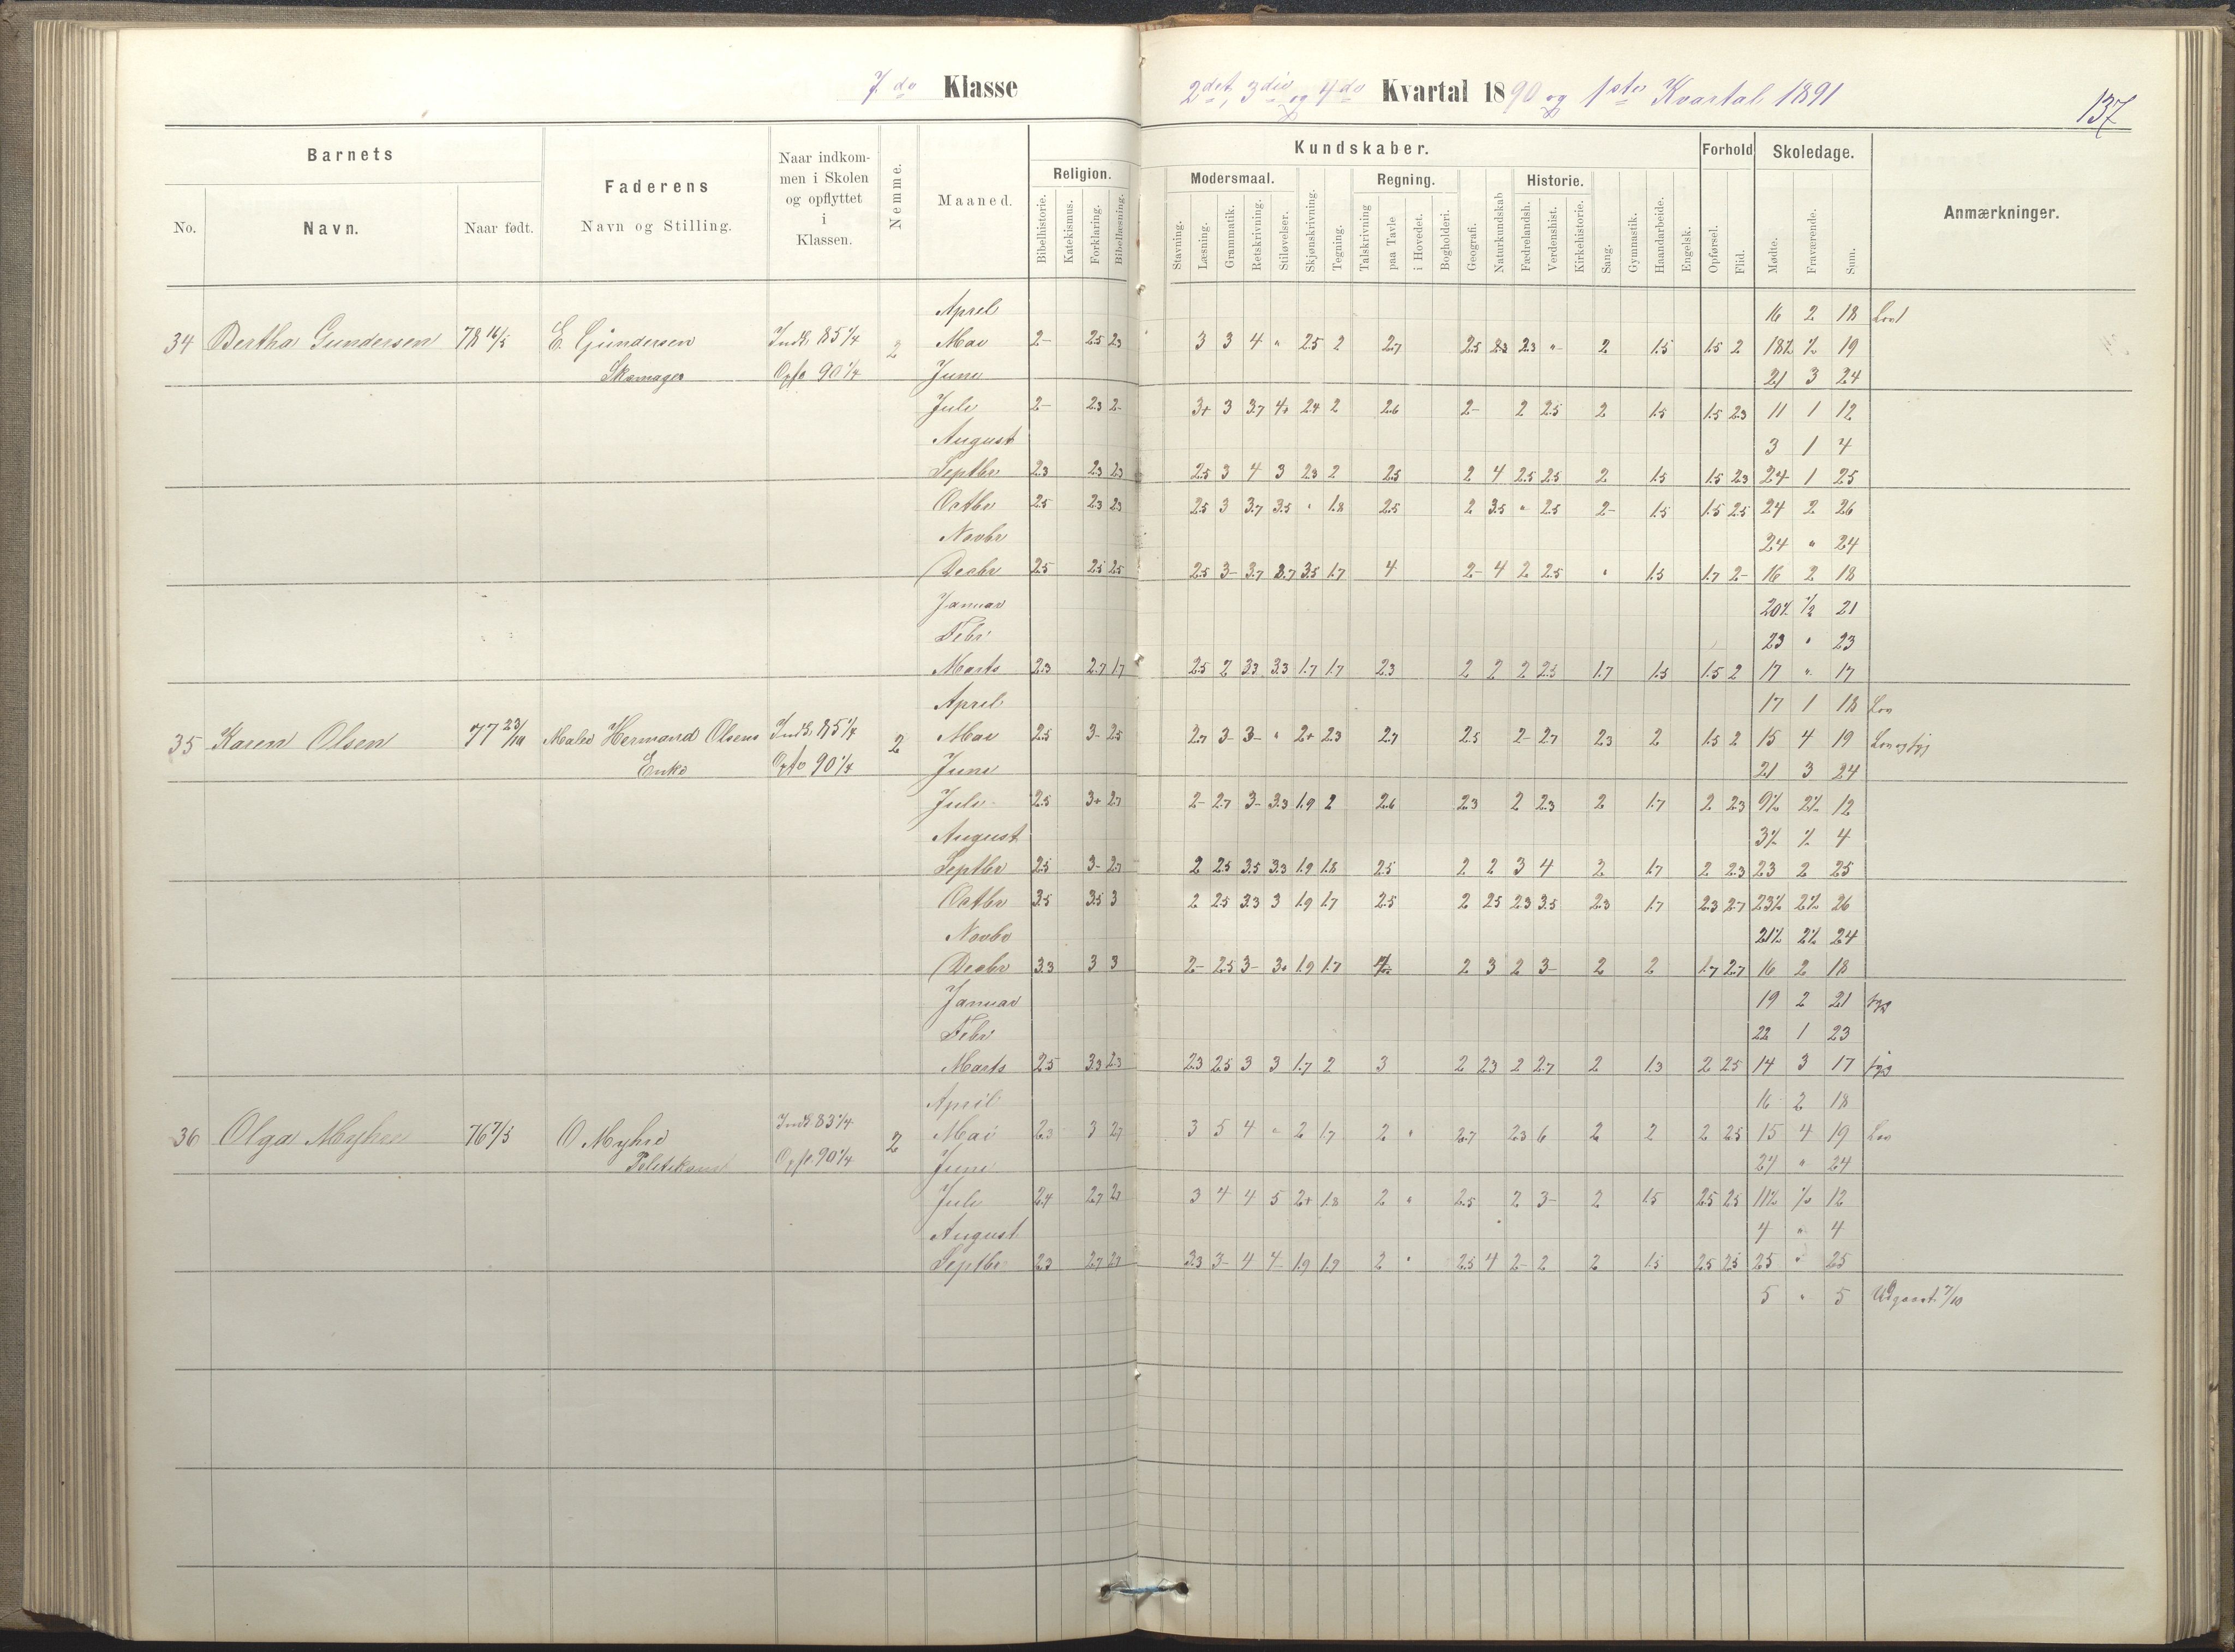 7de Klasse 2det, 3die og 4de Kvartal 1890 og 1ste Kvartal 1891
137
Barnets
No.
Navn.
Naar født.
Faderens
Navn og Stilling.
Naar indkom-
men i Skolen
og opflyttet
i
Klassen.
Nemme.
Maaned.
Kundskaber.
Religion.
Bibelhistorie.
Katekismus.
Forklaring.
Bibellæsning.
Modersmaal.
Stavning.
Læsning.
Grammatik.
Retskrivning.
Stiløvelser.
Skjønskrivning.
Tegning.
Regning.
Talskrivning
paa Tavle
i Hovedet.
Bogholderi.
Geografi.
Naturkundskab
Historie.
Fædrelandsh.
Verdenshist.
Kirkehistorie.
Sang.
Gymnastik.
Haandarbeide.
Engelsk.
Forhold
Opførsel.
Flid.
Skoledage.
Mødte.
Fraværende.
Sum.
Anmærkninger.
April 16 2 18
34 Bertha Gundersen 78 16/5 E. Gundersen Indk. 85 1/4 2 Mai 2- 2.5 2.3 3 3 4 " 2.5 2 2.7 2.5 2.3 2.3 " 2 1.5 1.5 2 18½ ½ 19
Skomager Opfl 90 1/4 Juni 21 3 24
Juli 2- 2.3 2- 3+ 3 3.7 4+ 2.4 2 2.6 2- 2 2.5 2 1.5 1.5 2.3 11 1 12
August 3 1 4
Septbr 2.3 2.3 2.3 2.5 3 4 3 2.3 2 2.5 2 4 2.5 2.5 2 1.5 1.5 2.3 24 1 25
Octbr 2.5 2.3 2.3 2.5 3 3.7 3.5 " 1.8 2.5 2 3.5 " 2.5 2- 1.5 1.5 2.5 24 2 26
Novbr 24 " 24
Decbr 2.5 2.5 2.5 2.5 3- 3.7 3.7 3.5 1.7 4 2- 4 2 2.5 " 1.5 1.7 2- 16 2 18
Januar 20½ ½ 21
Febr 23 " 23
Marts 2.3 2.7 1.7 2.5 2 3.3 3.3 1.7 1.7 2.3 2 2 2 2.3 1.7 1.5 1.5 2 17 " 17
April 17 1 18 Lov
35 Karen Olsen 77 23/10 Maler Hermand Olsens Indk. 85 1/4 2 Mai 2.5 3- 2.5 2.7 3- 3- " 2+ 2.3 2.7 2.5 2- 2.7 2.3 2 1.5 2 15 4 19 Lov og syg
Enke Opfl 90 1/4 Juni 21 3 24
Juli 2.5 3+ 2.7 2- 2.7 3- 3.3 1.9 2 2.6 2.3 2 2.3 2 1.7 2 2.3 9½ 2½ 12
August 3½ ½ 4
Septbr 2.5 3- 2.7 2 2.5 3.5 3.3 1.9 1.8 2.5 2 2 3 4 2 1.7 2 2.3 23 2 25
Octbr 3.5 3.5 3 2 2.5 3.3 3 1.9 1.7 2.5 2 2.5 2.3 3.5 2.3 1.7 2.3 2.7 23½ 2½ 26
Novbr 21½ 2½ 24
Decbr 3.3 3 3 2- 2.5 3- 3+ 1.9 1.7 2 3 2 3- 2 2 1.7 2.7 16 2 18
Januar 19 2 21 syg
Febr 22 1 23
Marts 2.5 3.3 2.3 2.3 2.5 3 3 1.7 2 3 2 2.3 2 2.7 2 1.3 2 2.5 14 3 17 syg
April 16 2 18
36 Olga Myhre 76 7/5 O Myhre Indk 83 1/4 2 Mai 2.3 3 2.7 3 5 4 " 2 1.7 2 " 2.7 2.3 6 2 2 2 2.5 15 4 19 Lov
Opfl. 90 1/4 Juni 24 " 24
Juli 2.4 2.7 2.7 3 4 4 5 2+ 1.8 2 " 2.5 2 3- 2 1.5 2.5 2.5 11½ ½ 12
August 4 " 4
Septbr 2.3 2.7 2.7 3.3 3- 4 4- 1.9 1.7 2 " 2.5 4 2- 2 2 1.5 2.5 2.5 25 " 25
5 " 5 Udgaat 7/10